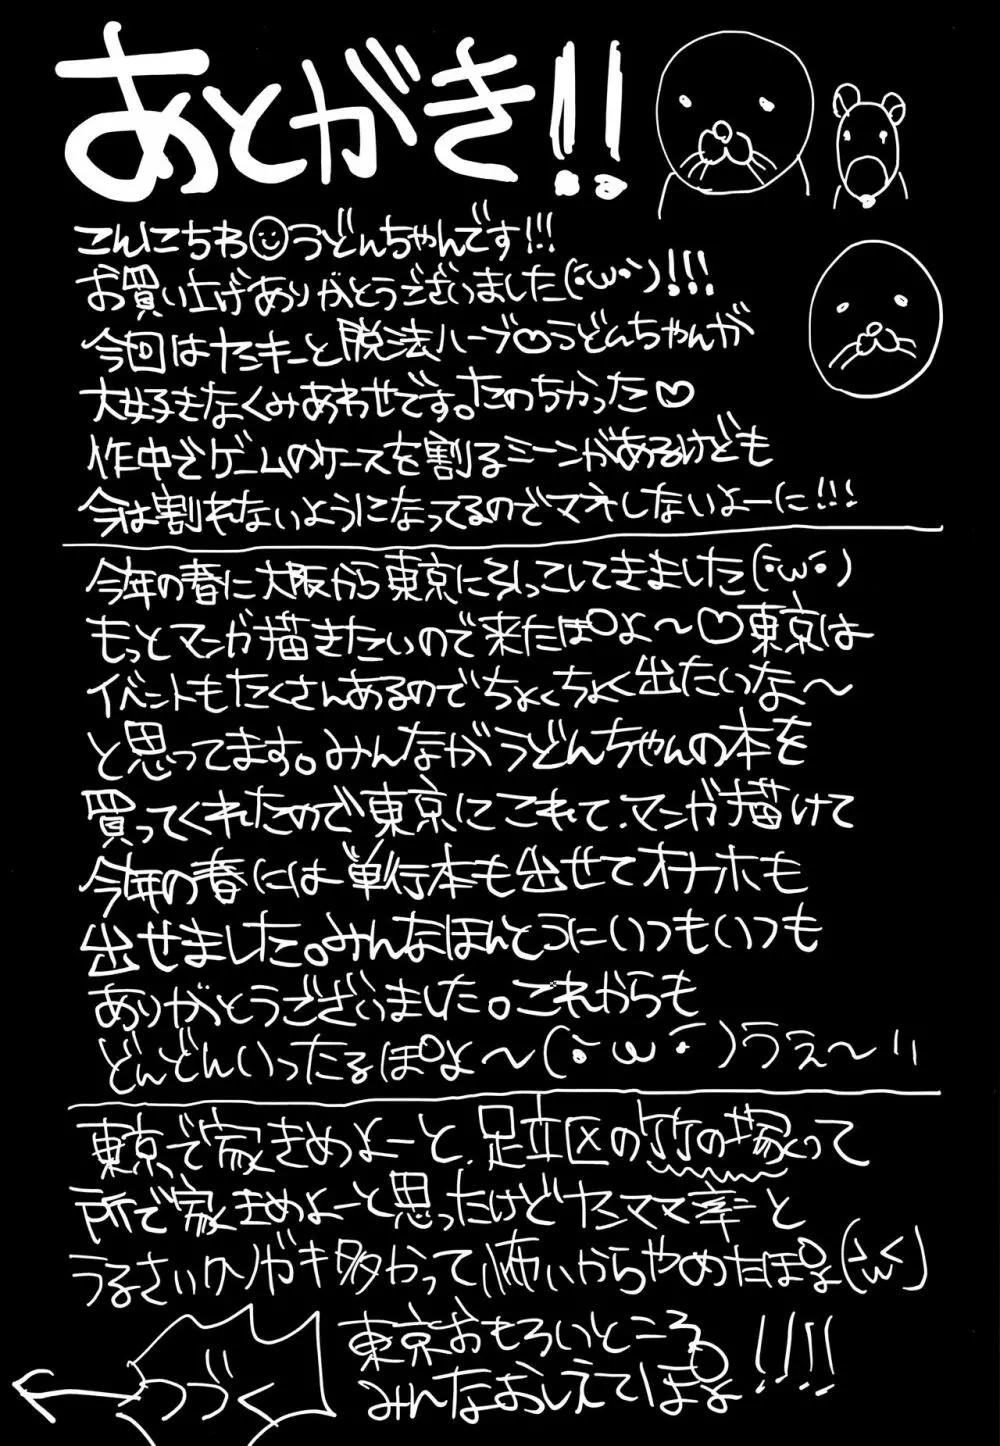 あとがき!!
こんにちわ☺うどんちゃんです!!!
お買い上げありがとうございました(･ω･)!!!
今回はヤンキーと脱法ハーブ♡うどんちゃんが
大好きなくみあわせです。たのちかった♡
作中でゲームのケースを割るシーンがあるけども
今は割れないようになってるのでマネしないよーに!!!
今年の春に大阪から東京に引っこしてきました(･ω･)
もっとマンガ描きたいので来たぽよ〜♡東京は
イベントもたくさんあるのでちょくちょく出たいな〜
と思ってます。みんながうどんちゃんの本を
買ってくれたので東京にこれて、マンガ描けて
今年の春には単行本も出せてオナホも
出せました。みんなほんとうにいつもいつも
ありがとうございました。これからも
どんどんいったるぽよ〜(･ω･)うぇ〜い
東京で家きめよーと、足立区の竹の塚って
所で家きめよーと思ったけどヤンママ率と
うるさいクソガキ多かって怖いからやめたぽよ(･ω<)
東京おもろいところ
みんなおしえてぽよ!!!!
つづく